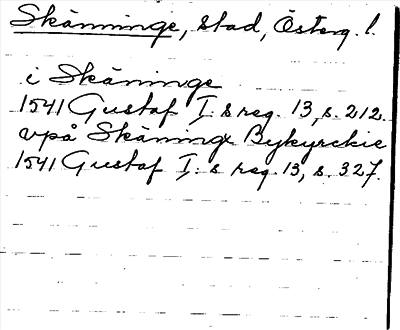 Skänninge, stad, Österg. l.
i Skäninge
1541 Gustaf I:s reg. 13, s. 212.
vpå Skäninge Bykyrckie
1541 Gustaf I:s reg. 13, s. 327.